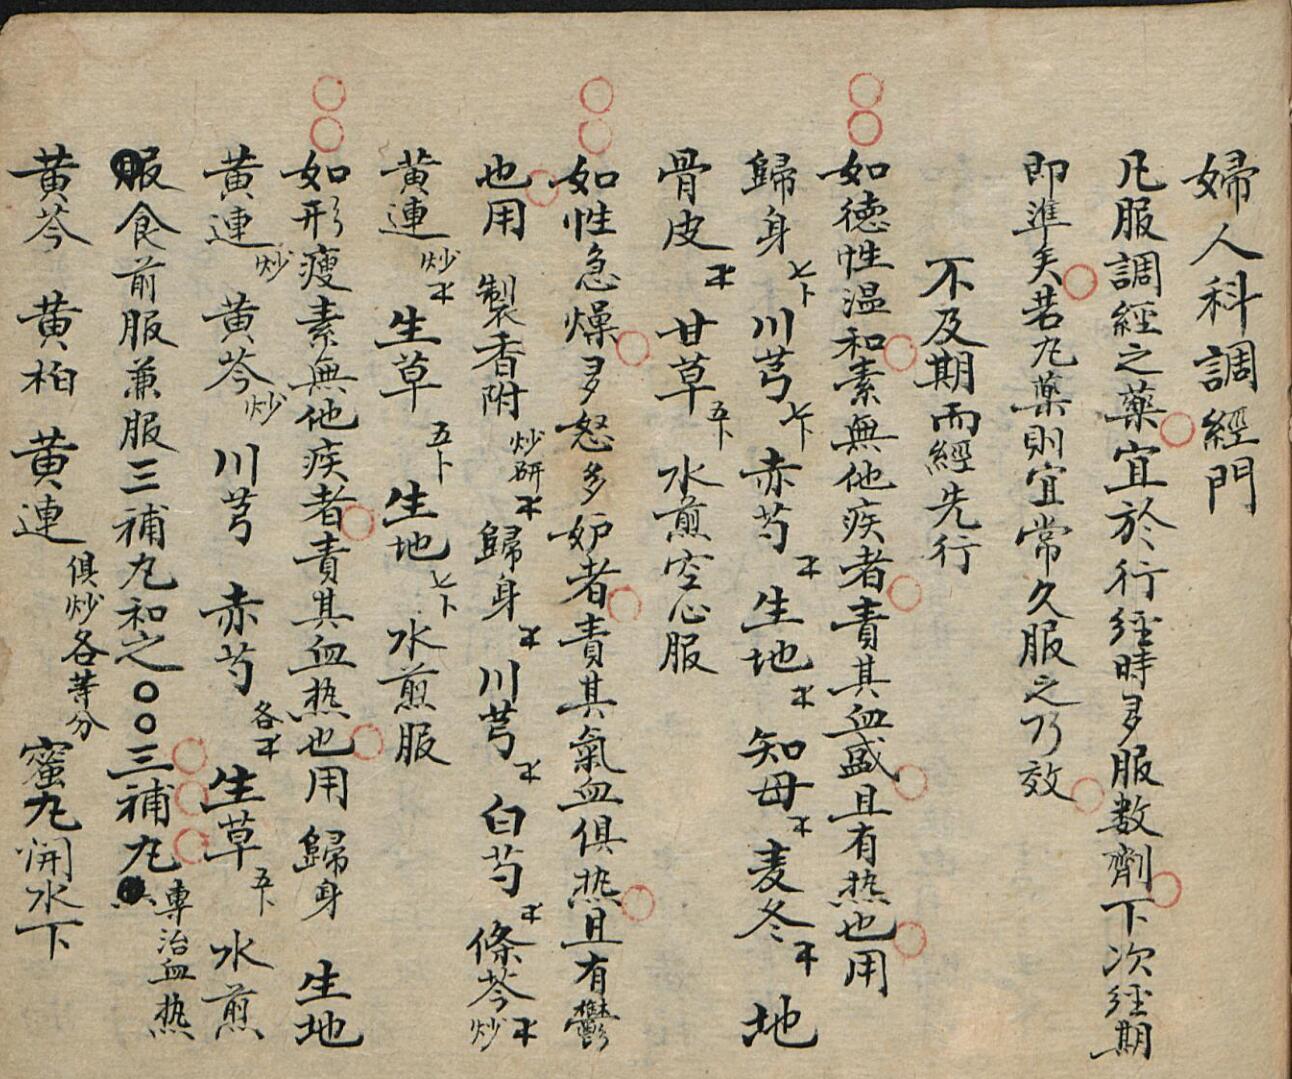 婦人科調經門
凡服調經之藥宜於行经時多服数劑下次经期
即準矣若丸藥則宜常久服之乃效
不及期而經先行
如德性温和素無他疾者責其血盛且有热也用
歸身 川芎 赤芍 生地 知母 麦冬 地
骨皮 甘草 水煎空心服
如性急燥多怒多妒者責其氣血俱热且有鬱
也用 製香附炒研 歸身 川芎 白芍 條芩炒
黄連炒 生草 生地 水煎服
如形瘦素無他疾者責其血热也用 歸身 生地
黄連炒 黄芩炒 川芎 赤芍各 生草 水煎
服食前服兼服三補丸和之〇〇三補丸 專治血热
黄芩 黄柏 黄連 俱炒各等分 蜜丸開水下